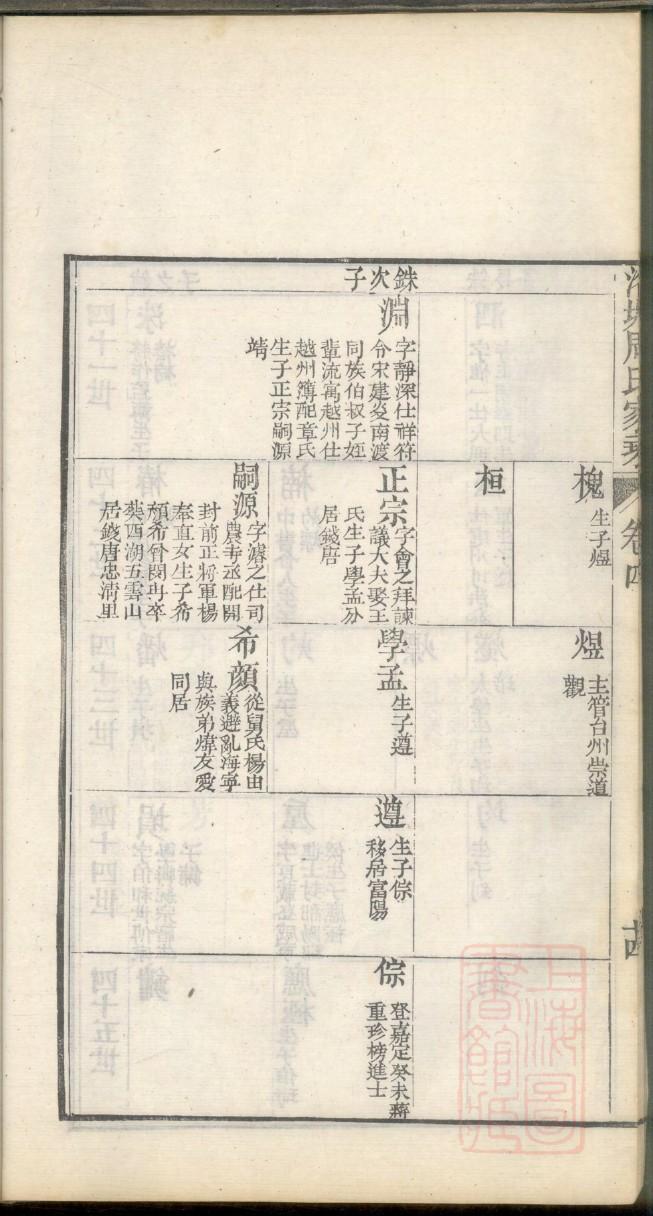 周氏家乘
卷四
十四
槐
生子煜
煜
主管台州崇道
觀
桓
銖次子
淵
字靜深仕祥符
令宋建炎南渡
同族伯叔子姪
輩流寓越州仕
越州簿配章氏
生子正宗嗣源
靖
正宗
字會之拜諫
議大夫娶王
氏生子學孟分
居錢唐
學孟
生子遵
遵
生子倧
移居富陽
倧
登嘉定癸未蔣
重珍榜進士
嗣源
字濬之仕司
農寺丞配開
封前正將軍楊
奉直女生子希
顏希曾閔冉卒
葬西湖五雲山
居錢唐忠清里
希顏
從舅氏楊由
義避亂海寧
與族弟煒友愛
同居
上海圖
書館藏